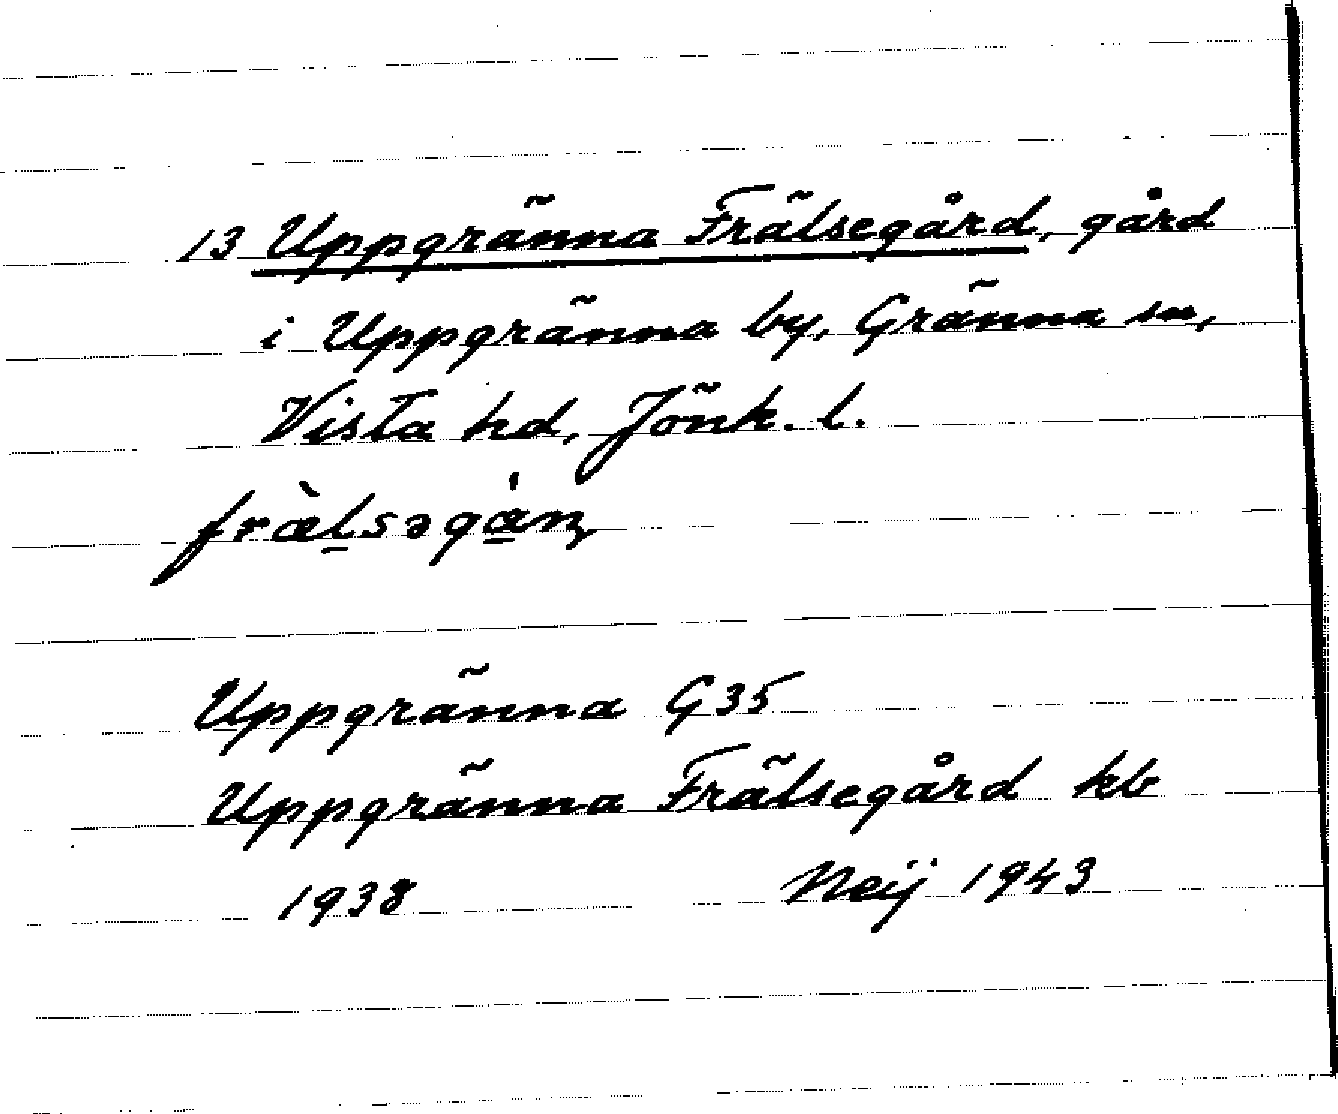 13 Uppgränna Frälsegård, gård
i Uppgränna by, Gränna sn,
Vista hd, Jönk. l.
Uppgränna G35
Uppgränna Frälsegård kb
1938 Neij 1943